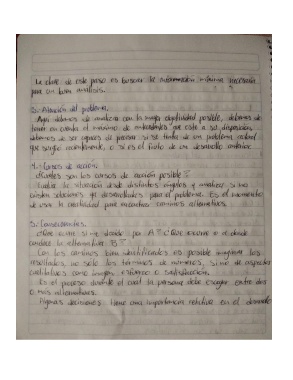 La clave de este paso es buscar la información mínima necesaria
para un buen análisis.
2.- Situación del problema.
Aquí debemos de analizar con la mayor objetividad posible, debemos de
tener en cuenta el máximo de que este a su disposición,
debemos de ser capaces de precisar si se trata de un problema actual
que surgio recientemente, o si es el fruto de un desarrollo anterior.
4.- Cursos de acción.
¿Cuáles son los cursos de acción posible?
la situación desde distintos ángulos y analizar, si no
existen soluciones ya desarrolladas para el problema. Es el momento
de usar la creatividad para encontrar caminos alternativos.
5. Consecuencias.
¿Qué si me donde por A? ¿Qué ocurre si el donde
conduce la alternativa B?
Con los caminos bien identificados es posible imaginar los
resultados, no solo los términos de números, sino de aspectos
cualitativos como imagen, esfuerzo o satisfacción.
Es el proceso durante el cual la persona debe escoger entre dos
o más alternativas.
Algunas decisiones tiene una importancia relativa en el desarrollo